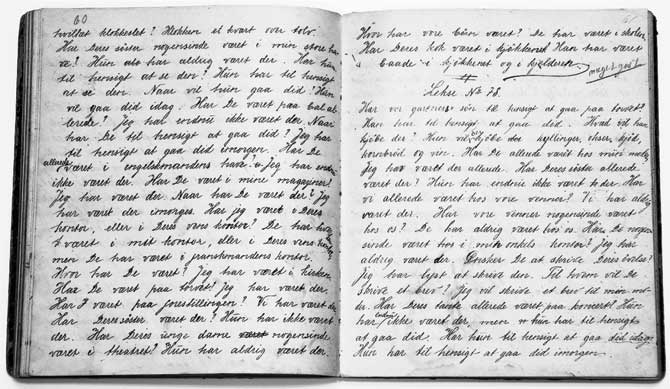 60
hvilket klokkeslet? Klokken et kvart over tolv.
Har Deres søster nogensinde været i min store ha-
ve? Hun har aldrig været der. Har hun
til hensigt at se den? Hun har til hensigt
at se den. Naar vil hun gaa did? Hun
vil gaa did idag. Har De været paa bal al-
lerede? Jeg har endnu ikke været der. Naar
har De til hensigt at gaa did? Jeg har
til hensigt at gaa did imorgen. Har De
allerede været i engelskmandens have? Jeg har endnu
ikke været der. Har De været i mine magaziner?
Jeg har været der. Naar har De været der? Jeg
har været der imorges. Har jeg været i Deres
kontor, eller i Deres vens kontor? De har hver-
været i mit kontor, eller i Deres vens kontor,
men De har været i franskmandens kontor.
Hvor har De været? Jeg har været i kirken.
Har De været paa torvet? Jeg har været der.
Har I været paa forestillingen? Vi har været der.
Har Deres søster været der? Hun har ikke været der.
Har Deres unge dame nogensinde
været i theatret? Hun har aldrig været der.
61
Hvor har vore børn været? De har været i skolen.
Har Deres kok været i kjøkkenet? Han har været
baade i kjøkkenet og i kjelderen.
meget godt
Lekse No 75.
Har vor gartner til hensigt at gaa paa torvet?
Han har til hensigt at gaa did. Hvad vil han
kjøbe der? Han vil kjøbe der kyllinger, okser, kjød,
kornbrød og vin. Har De allerede været hos min
Jeg har været der allerede. Har Deres søster allerede
været der? Hun har endnu ikke været der. Har
vi allerede været hos vore venner? Vi har aldrig
været der. Har vore venner nogensinde været
hos os? De har aldrig været hos os. Har De nogen-
sinde været hos i min onkels kontor? Jeg har
aldrig været der. Ønsker De at skrive Deres øvelse?
Jeg har lyst at skrive den. Til hvem vil De
skrive et brev? Jeg vil skrive et brev til min mo-
der. Har Deres tante allerede været paa koncert? Hun
har endnu ikke været der, men hun har til hensigt
at gaa did. Har hun til hensigt at gaa did idag?
Hun har til hensigt at gaa did imorgen.